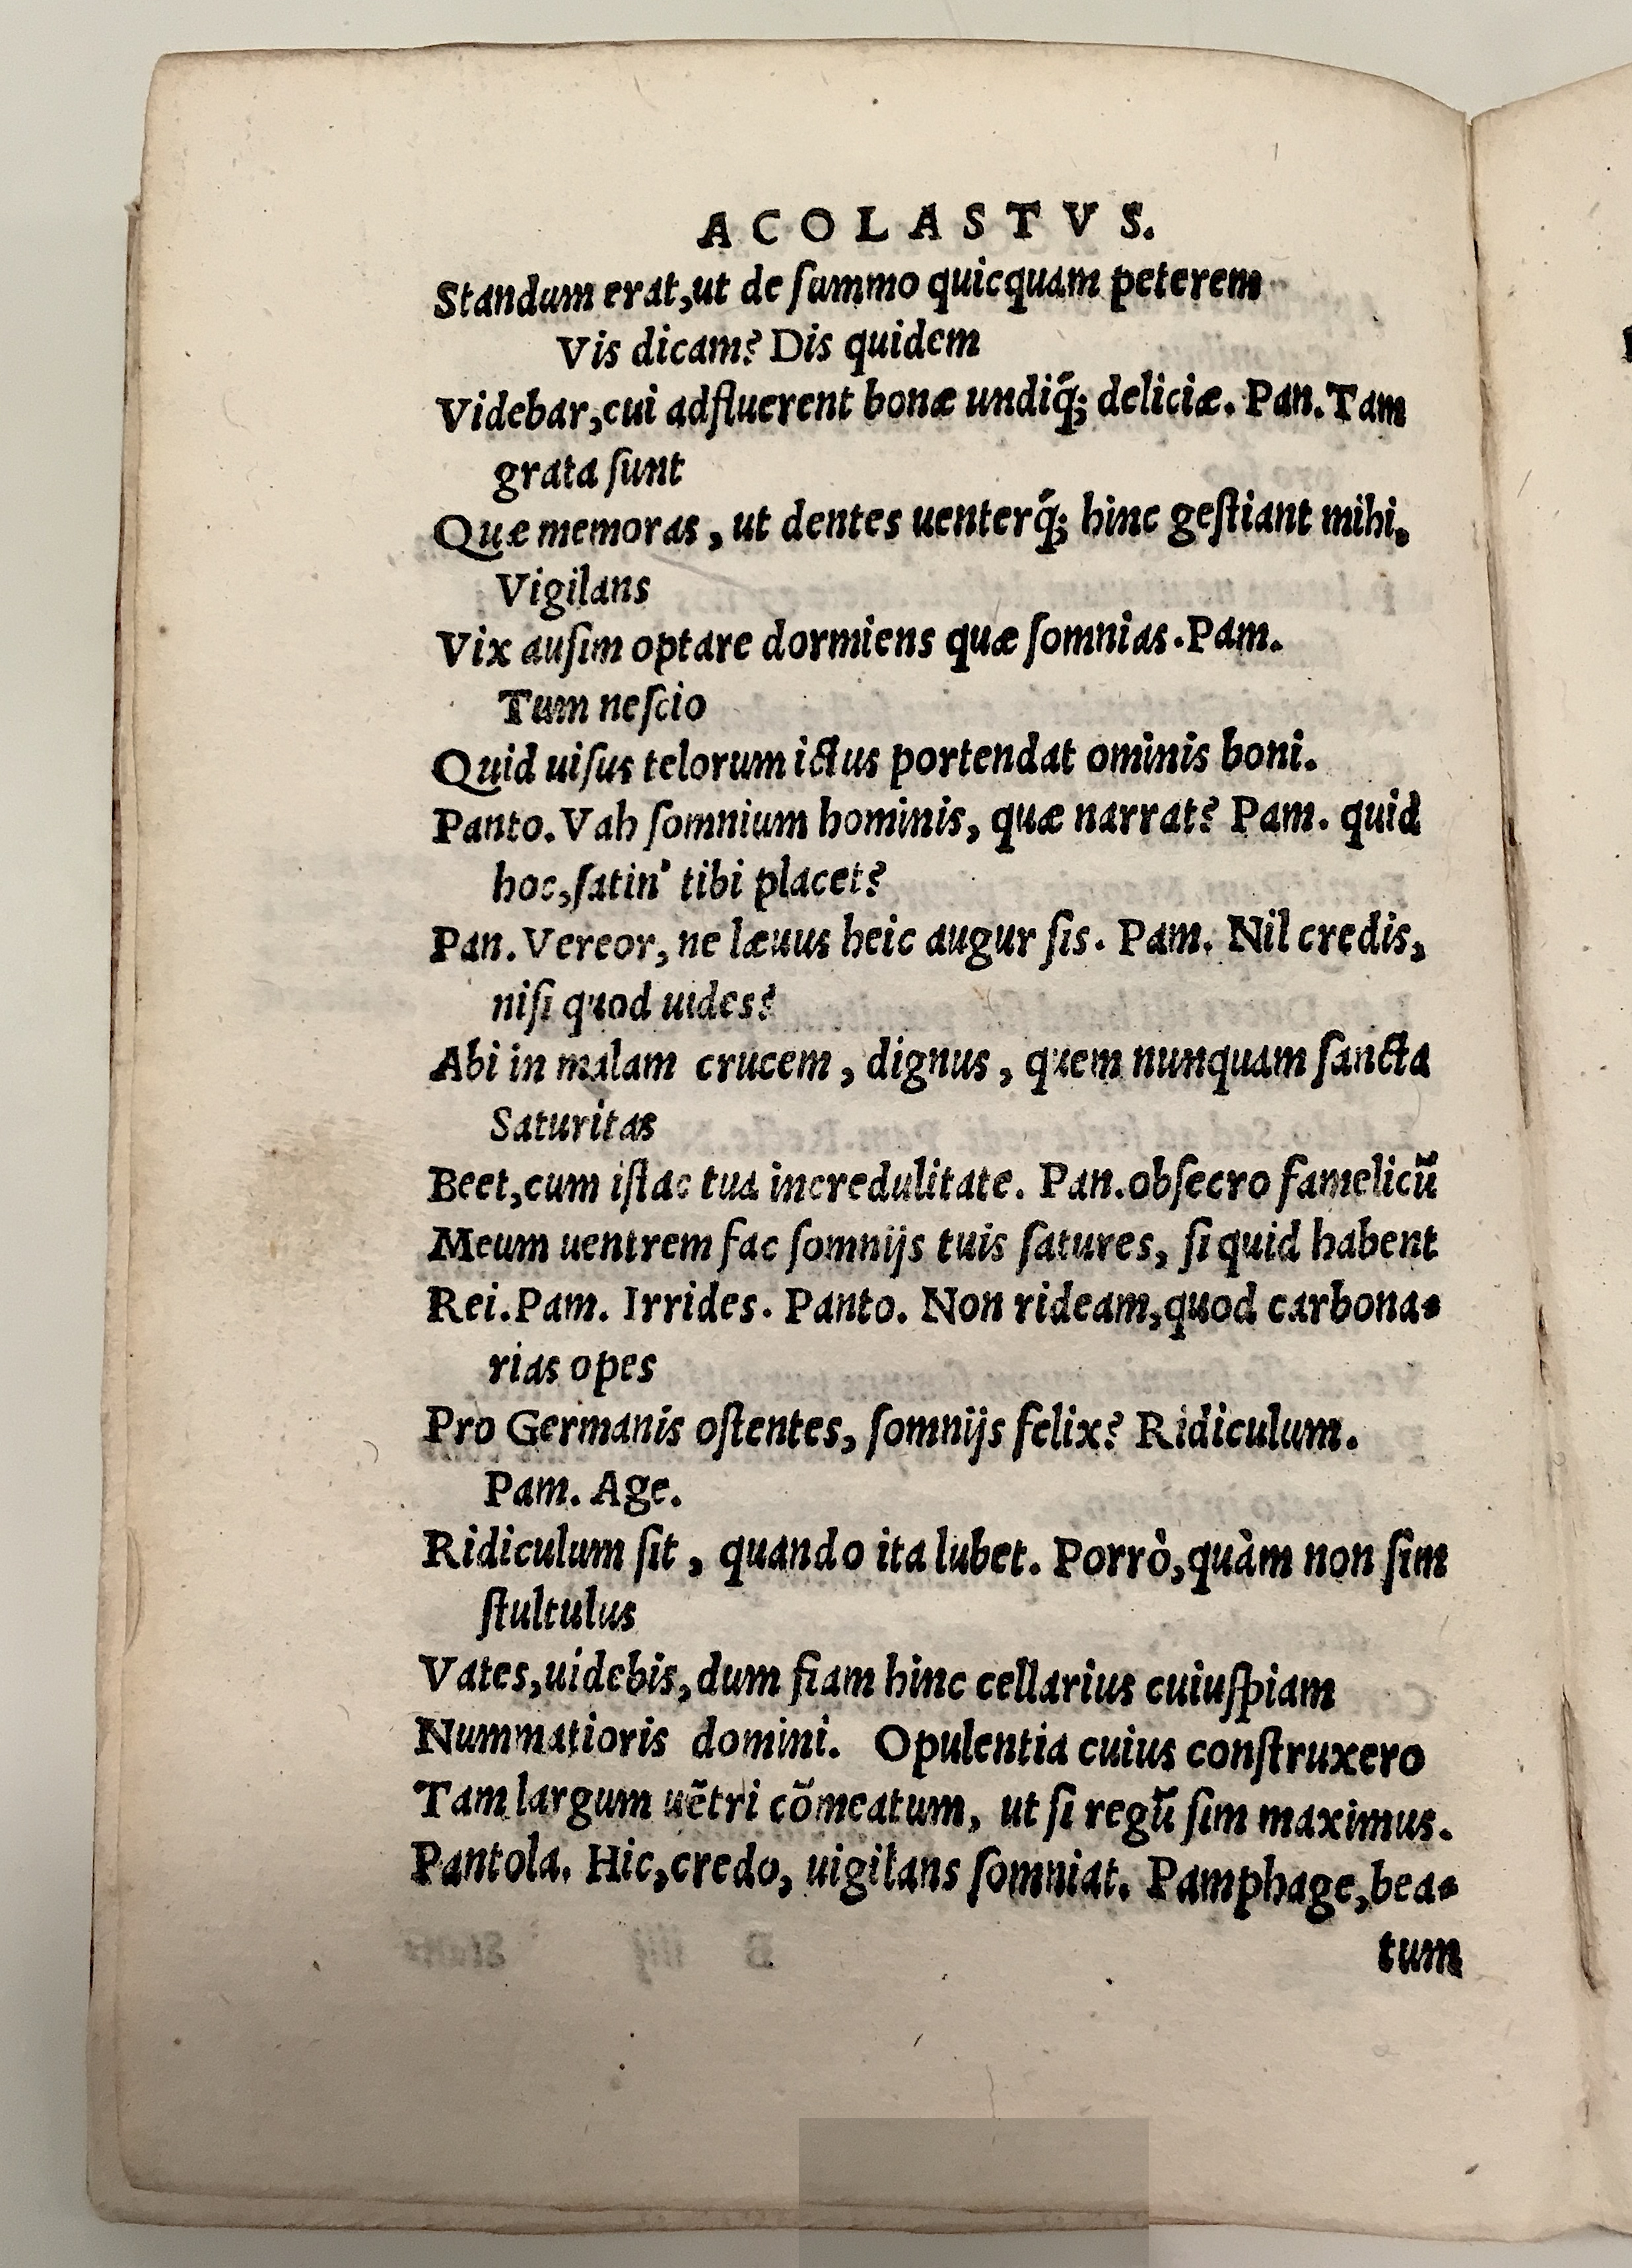 ACOLASTVS.
Standum erat,ut de ſummo quicquam peterem
Vis dicam? Dis quidem
Videbar,cui adfluerent bonæ undiq́; deliciæ. Pan.Tam
grata ſunt
Quæ memoras, ut dentes uenterq́; hinc geſtiant mihi.
Vigilans
Vix auſim optare dormiens quæ ſomnias.Pam.
Tum neſcio
Quid uiſus telorum ictus portendat ominis boni.
Panto.Vah ſomnium hominis, quæ narrat? Pam. quid
hoc,ſatin' tibi placet?
Pan.Vereor, ne læuus heic augur ſis. Pam. Nil credis,
niſi quod uides?
Abi in malam crucem, dignus, quem nunquam ſancta
Saturitas
Beet,cum iſtac tua incredulitate. Pan.obſecro famelicũ
Meum uentrem fac ſomnijs tuis ſatures, ſi quid habent
Rei.Pam. Irrides. Panto. Non rideam,quod carbona-
rias opes
Pro Germanis oſtentes, ſomnijs felix? Ridiculum.
Pam. Age.
Ridiculum ſit, quando ita lubet. Porrò,quàm non ſim
ſtultulus
Vates,uidebis,dum fiam hinc cellarius cuiuſpiam
Nummatioris domini. Opulentia cuius conſtruxero
Tam largum uẽtri cõmeatum, ut ſi regũ ſim maximus.
Pantola. Hic,credo, uigilans ſomniat. Pamphage,bea-
tum